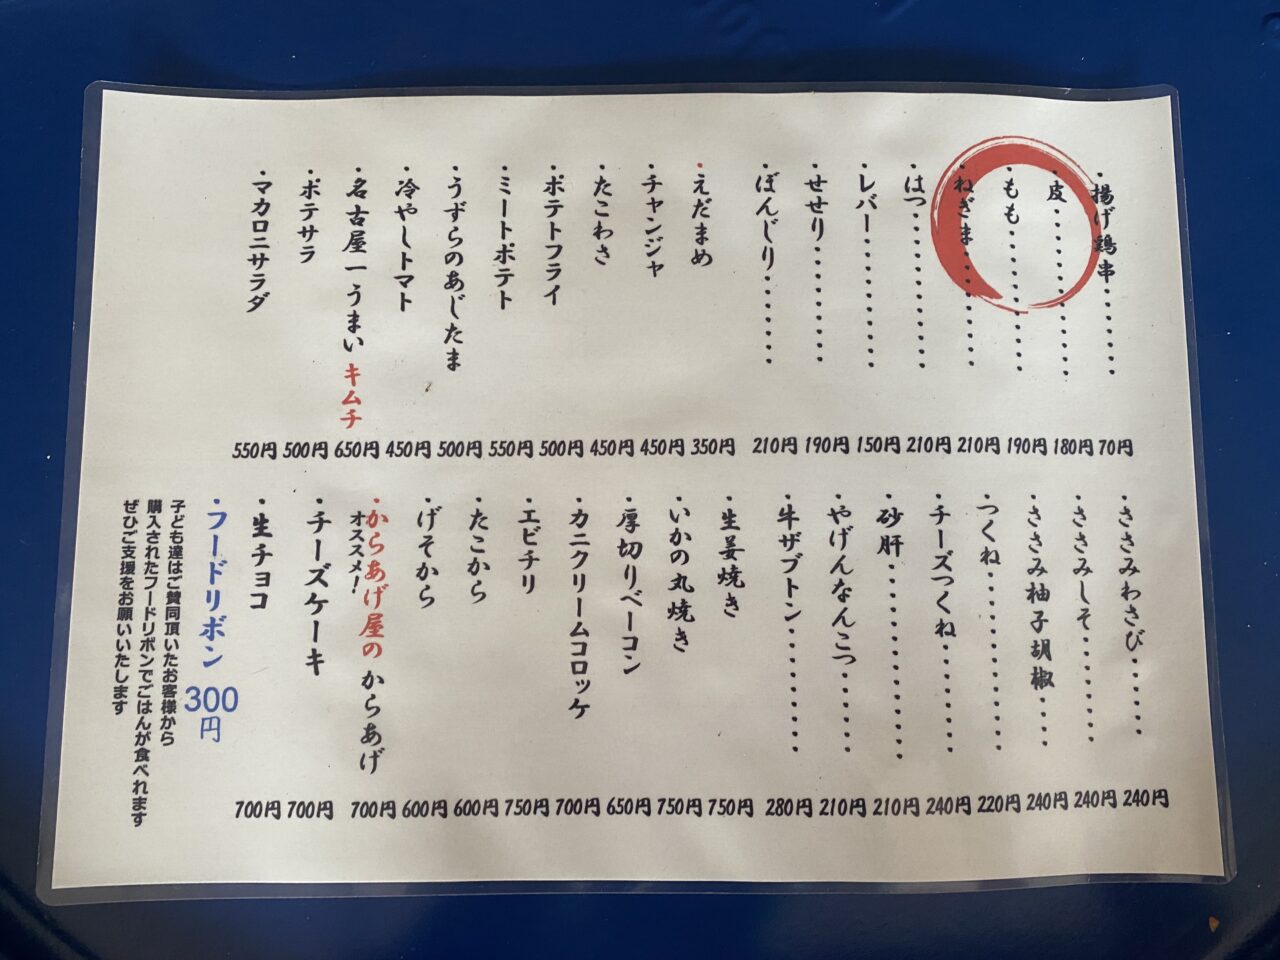 ・揚げ鶏串........ 70円
・皮............ 180円
・もも.......... 190円
・ねぎま......... 210円
・はつ.......... 210円
・レバー......... 150円
・せせり......... 190円
・ぼんじり........ 210円
・えだまめ 350円
・チャンジャ 450円
・たこわさ 450円
・ポテトフライ 500円
・ミートポテト 550円
・うずらのあじたま 500円
・冷やしトマト 450円
・名古屋一うまいキムチ 650円
・ポテサラ 500円
・マカロニサラダ 550円
・ささみわさび...... 240円
・ささみしそ....... 240円
・ささみ柚子胡椒.... 240円
・つくね........... 220円
・チーズつくね...... 240円
・砂肝........... 210円
・やげんなんこつ..... 210円
・牛ザブトン........ 280円
・生姜焼き 750円
・いかの丸焼き 750円
・厚切りベーコン 650円
・カニクリームコロッケ 700円
・エビチリ 750円
・たこから 600円
・げそから 600円
・からあげ屋のからあげ 700円
オススメ！
・チーズケーキ 700円
・生チョコ 700円
・フードリボン 300円
子ども達はご賛同頂いたお客様から
購入されたフードリボンでごはんが食べれます
ぜひご支援をお願いいたします